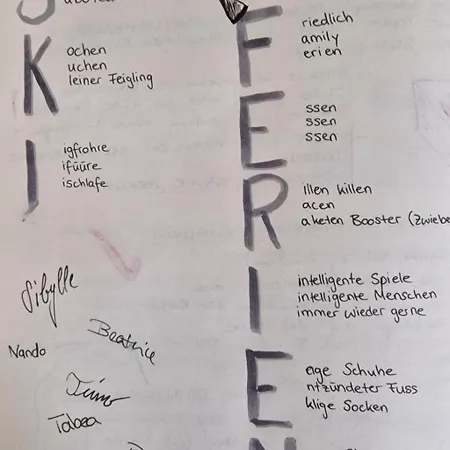 K
ochen
uchen
leiner Feigling
I
igfrohre
ifüüre
ischlafe
Sibylle
Beatrice
Nando
Timo
F
riedlich
amily
erien
E
ssen
ssen
ssen
R
illen killen
acen
aketen Booster (Zwiebe
I
intelligente Spiele
intelligente Menschen
immer wieder gerne
E
age Schuhe
ntzündeter Fuss
klige Socken